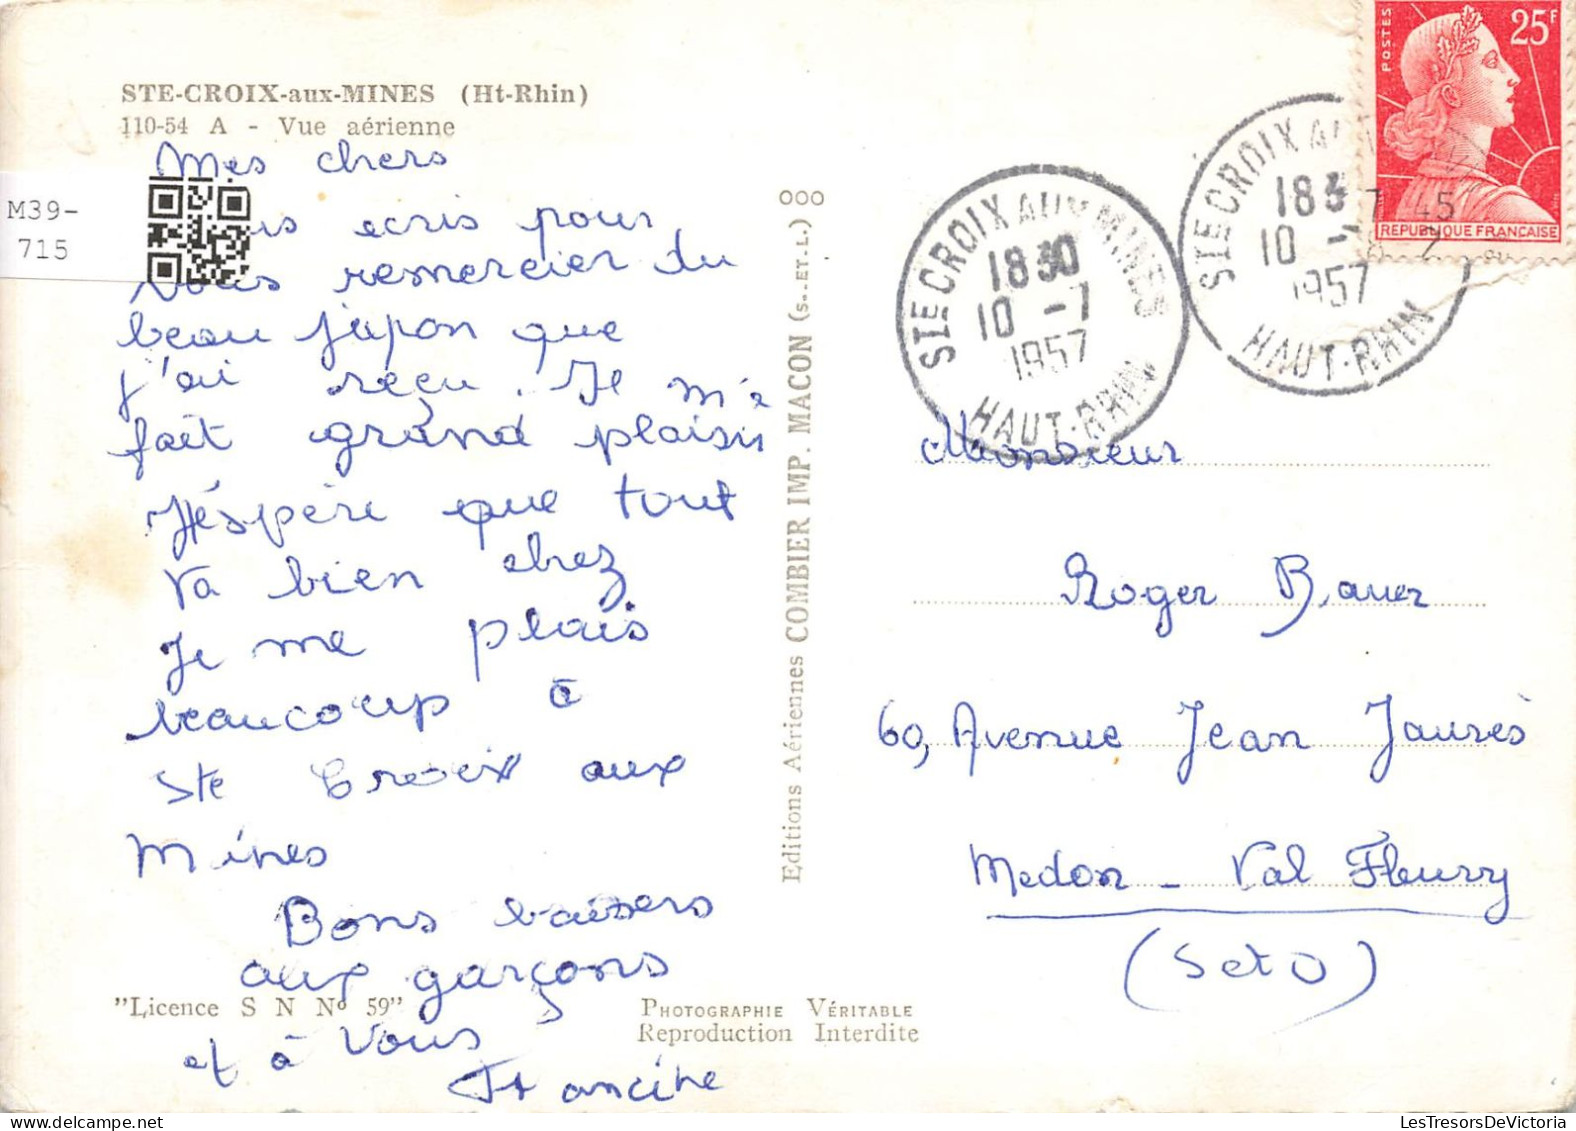 STE-CROIX-aux-MINES (Ht-Rhin)
110-54 A - Vue aérienne
Mes chers
M39-
715
ecris pour
vous remercier du
beau jupon que
j'ai reçu. Il m'a
fait grand plaisir
J'éspère que tout
va bien chez
Je me plais
beaucoup à
Ste Croix aux
Mines
Bons baisers
aux garçons
et à Vous
Francine
"Licence S N No 59"
PHOTOGRAPHIE VÉRITABLE
Reproduction Interdite
Editions Aériennes COMBIER IMP. MACON (S.-ET-L.)
STE CROIX AUX MINES
1830
10 -7
1957
HAUT-RHIN
STE CROIX AUX
183
10 -
1957
HAUT-RHIN
POSTES
25F
REPUBLIQUE FRANCAISE
Monsieur
Roger Bauer
60, Avenue Jean Jaurès
Medon - Val Fleury
(S et O)
LesTresorsDeVictoria.com